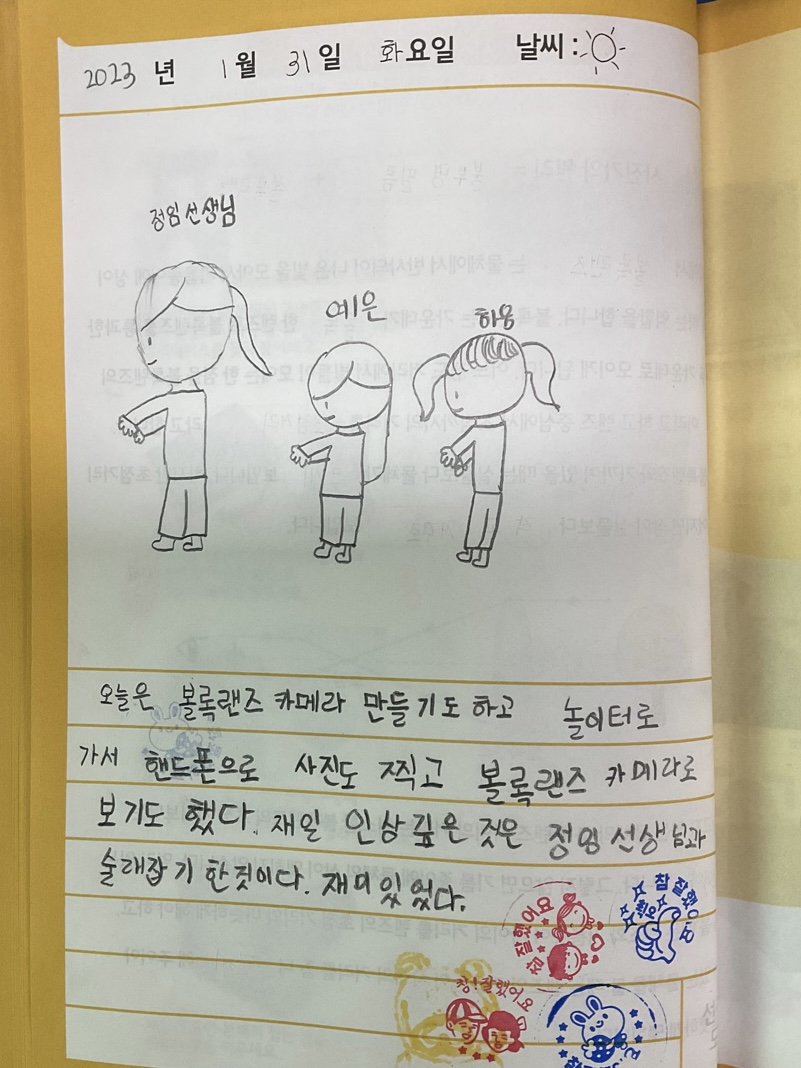 2023 년 1월 31일 화요일 날씨:
정임선생님
예은
하용
오늘은 볼록랜즈 카메라 만들기도 하고 놀이터로
가서 핸드폰으로 사진도 찍고 볼록랜즈 카메라로
보기도 했다. 재일 인상 깊은 것은 정임 선생님과
술래잡기 한것이다. 재미있었다.
참 잘했어요
참 잘했어요
최고
참! 잘했어요